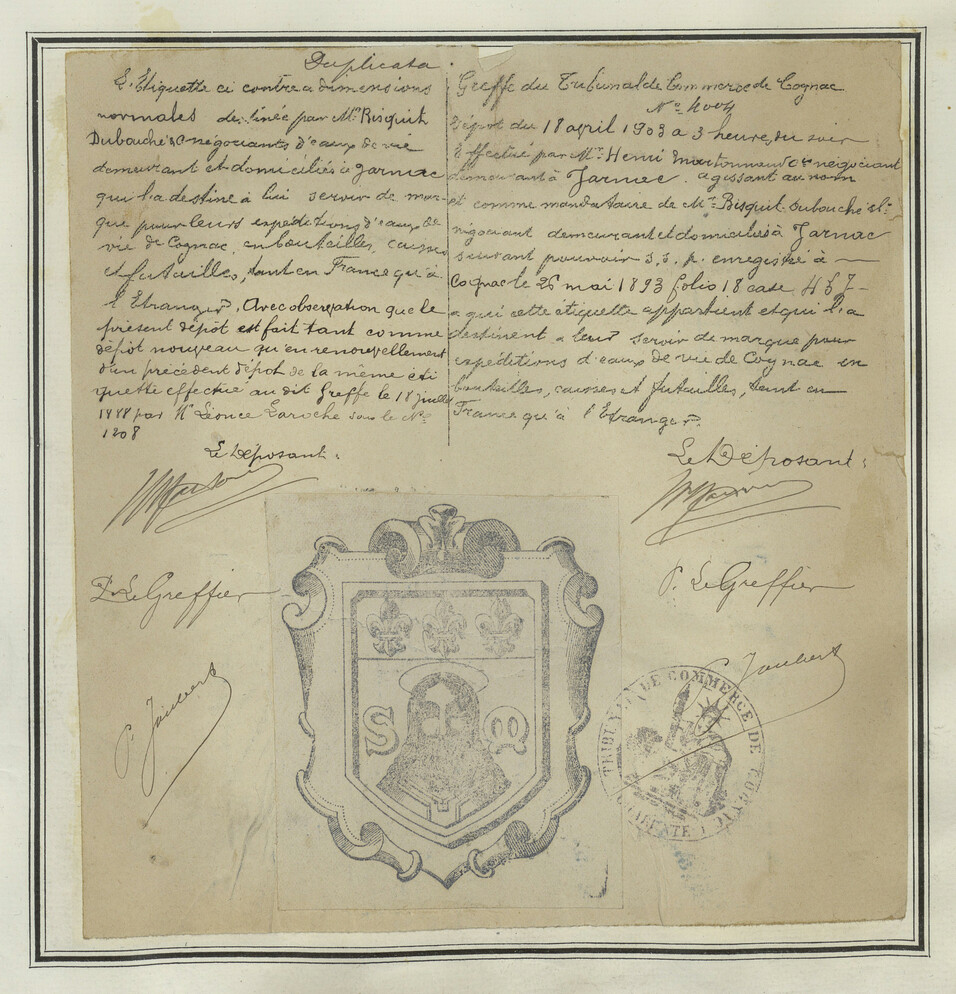 Duplicata.
L'Etiquette ci contre a dimensions
normales destinée par Mrs Bisquit
Dubouché & Co négociants d'eaux de vie
demeurant et domiciliés à Jarnac
qui l'a destine à lui servir de mar-
que pour leurs expéditions d'eaux de
vie de Cognac, en bouteilles, caisses
et futailles, tant en France qu'à
l'Etranger. Avec observation que le
présent dépôt est fait tant comme
dépôt nouveau qu'en renouvellement
d'un précédent dépôt de la même éti
quette effectué au dit Greffe le 18 juillet
1888 par Mr Léonce Laroche sous le No
1208
Le Déposant:
Pr Le Greffier
P. Joubert
Greffe du Tribunal de Commerce de Cognac
No 4004
Dépôt du 18 avril 1903 à 3 heures du soir
Effectué par Mr Henri négociant
demeurant à Jarnac. agissant au nom
et comme mandataire de Mrs Bisquit Dubouché &
négociant demeurant et domiciliés à Jarnac
suivant pouvoir s.s.p. enregistré à
Cognac le 26 mai 1893 folio 18 case 457
a qui cette étiquette appartient et qui l'a
destinent a leur servir de marque pour
expéditions d'eaux de vie de Cognac en
bouteilles, caisses et futailles, tant en
France qu'à l'Etranger.
Le Déposant:
P. Le Greffier
P. Joubert
S M
TRIBUNAL DE COMMERCE DE COGNAC
CHARENTE